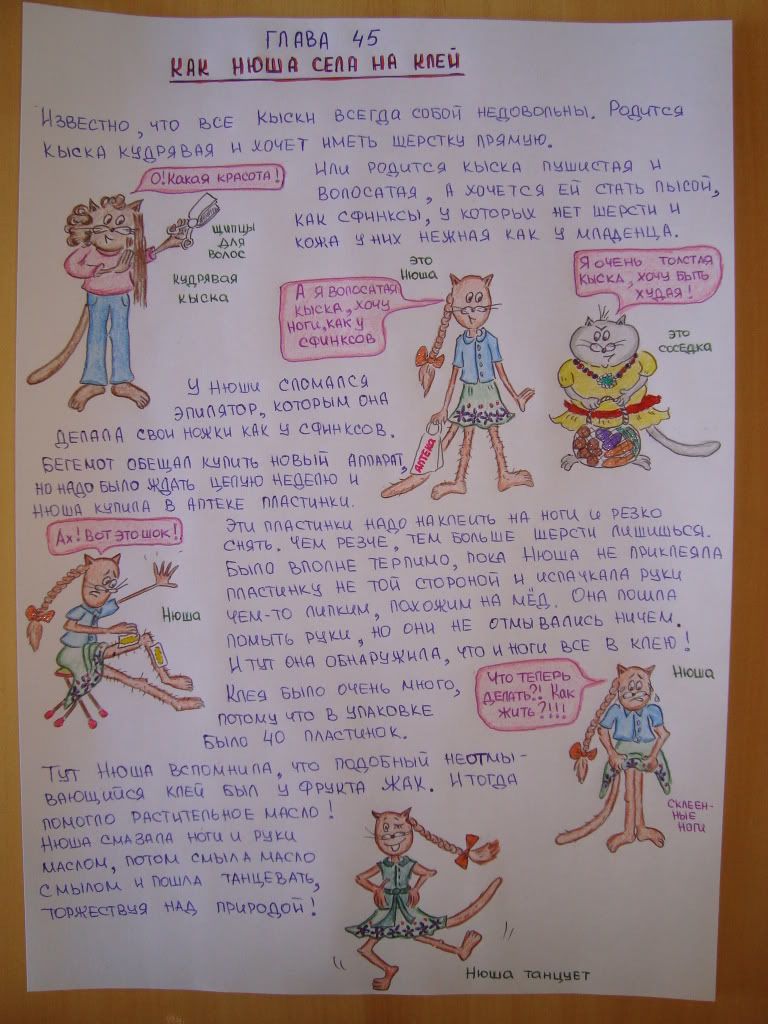 ГЛАВА 45
КАК НЮША СЕЛА НА КЛЕЙ
ИЗВЕСТНО, ЧТО ВСЕ КЫСКИ ВСЕГДА СОБОЙ НЕДОВОЛЬНЫ. РОДИТСЯ
КЫСКА КУДРЯВАЯ И ХОЧЕТ ИМЕТЬ ШЕРСТКУ ПРЯМУЮ.
О! КАКАЯ КРАСОТА!
ЩИПЦЫ
ДЛЯ
ВОЛОС
КУДРЯВАЯ
КЫСКА
ИЛИ РОДИТСЯ КЫСКА ПУШИСТАЯ И
ВОЛОСАТАЯ, А ХОЧЕТСЯ ЕЙ СТАТЬ ЛЫСОЙ,
КАК СФИНКСЫ, У КОТОРЫХ НЕТ ШЕРСТИ И
КОЖА У НИХ НЕЖНАЯ КАК У МЛАДЕНЦА.
ЭТО
НЮША
А Я ВОЛОСАТАЯ
КЫСКА, ХОЧУ
НОГИ, КАК У
СФИНКСОВ
Я ОЧЕНЬ ТОЛСТАЯ
КЫСКА, ХОЧУ БЫТЬ
ХУДАЯ!
ЭТО
СОСЕДКА
АПТЕКА
У НЮШИ СЛОМАЛСЯ
ЭПИЛЯТОР, КОТОРЫМ ОНА
ДЕЛАЛА СВОИ НОЖКИ КАК У СФИНКСОВ.
БЕГЕМОТ ОБЕЩАЛ КУПИТЬ НОВЫЙ АППАРАТ,
НО НАДО БЫЛО ЖДАТЬ ЦЕЛУЮ НЕДЕЛЮ И
НЮША КУПИЛА В АПТЕКЕ ПЛАСТИНКИ.
АХ! ВОТ ЭТО ШОК!
НЮША
ЭТИ ПЛАСТИНКИ НАДО НАКЛЕИТЬ НА НОГИ И РЕЗКО
СНЯТЬ. ЧЕМ РЕЗЧЕ, ТЕМ БОЛЬШЕ ШЕРСТИ ЛИШИШЬСЯ.
БЫЛО ВПОЛНЕ ТЕРПИМО, ПОКА НЮША НЕ ПРИКЛЕЯЛА
ПЛАСТИНКУ НЕ ТОЙ СТОРОНОЙ И ИСПАЧКАЛА РУКИ
ЧЕМ-ТО ЛИПКИМ, ПОХОЖИМ НА МЁД. ОНА ПОШЛА
ПОМЫТЬ РУКИ, НО ОНИ НЕ ОТМЫВАЛИСЬ НИЧЕМ.
И ТУТ ОНА ОБНАРУЖИЛА, ЧТО И НОГИ ВСЕ В КЛЕЮ!
КЛЕЯ БЫЛО ОЧЕНЬ МНОГО,
ПОТОМУ ЧТО В УПАКОВКЕ
БЫЛО 40 ПЛАСТИНОК.
ЧТО ТЕПЕРЬ
ДЕЛАТЬ?! КАК
ЖИТЬ?!!!
НЮША
СКЛЕЕН-
НЫЕ
НОГИ
ТУТ НЮША ВСПОМНИЛА, ЧТО ПОДОБНЫЙ НЕОТМЫ-
ВАЮЩИЙСЯ КЛЕЙ БЫЛ У ФРУКТА ЖАК. И ТОГДА
ПОМОГЛО РАСТИТЕЛЬНОЕ МАСЛО!
НЮША СМАЗАЛА НОГИ И РУКИ
МАСЛОМ, ПОТОМ СМЫЛА МАСЛО
С МЫЛОМ И ПОШЛА ТАНЦЕВАТЬ,
ТОРЖЕСТВУЯ НАД ПРИРОДОЙ!
НЮША ТАНЦУЕТ